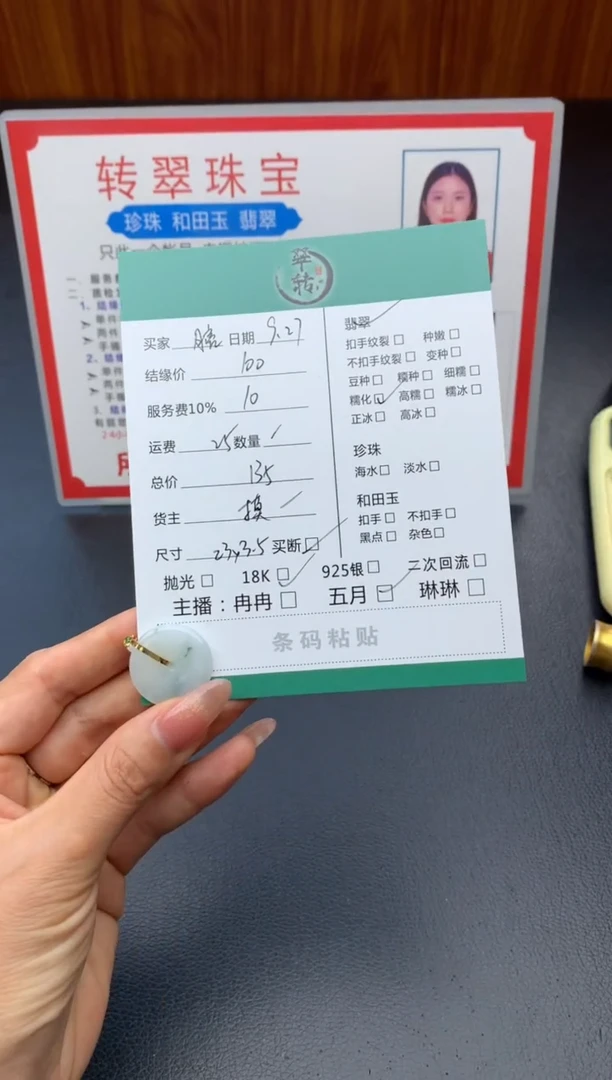 转翠珠宝
珍珠 和田玉 翡翠
翠转
买家 日期 9.27
结缘价 100
服务费10% 10
运费 25 数量 1
总价 135
货主
尺寸 23×3.5 买断□
翡翠
扣手纹裂□ 种嫩□
不扣手纹裂□ 变种□
豆种□ 糯种□ 细糯□
糯化□ 高糯□ 糯冰□
正冰□ 高冰□
珍珠
海水□ 淡水□
和田玉
扣手□ 不扣手□
黑点□ 杂色□
抛光□ 18K□ 925银□ 二次回流□
主播：冉冉□ 五月□ 琳琳□
条码粘贴